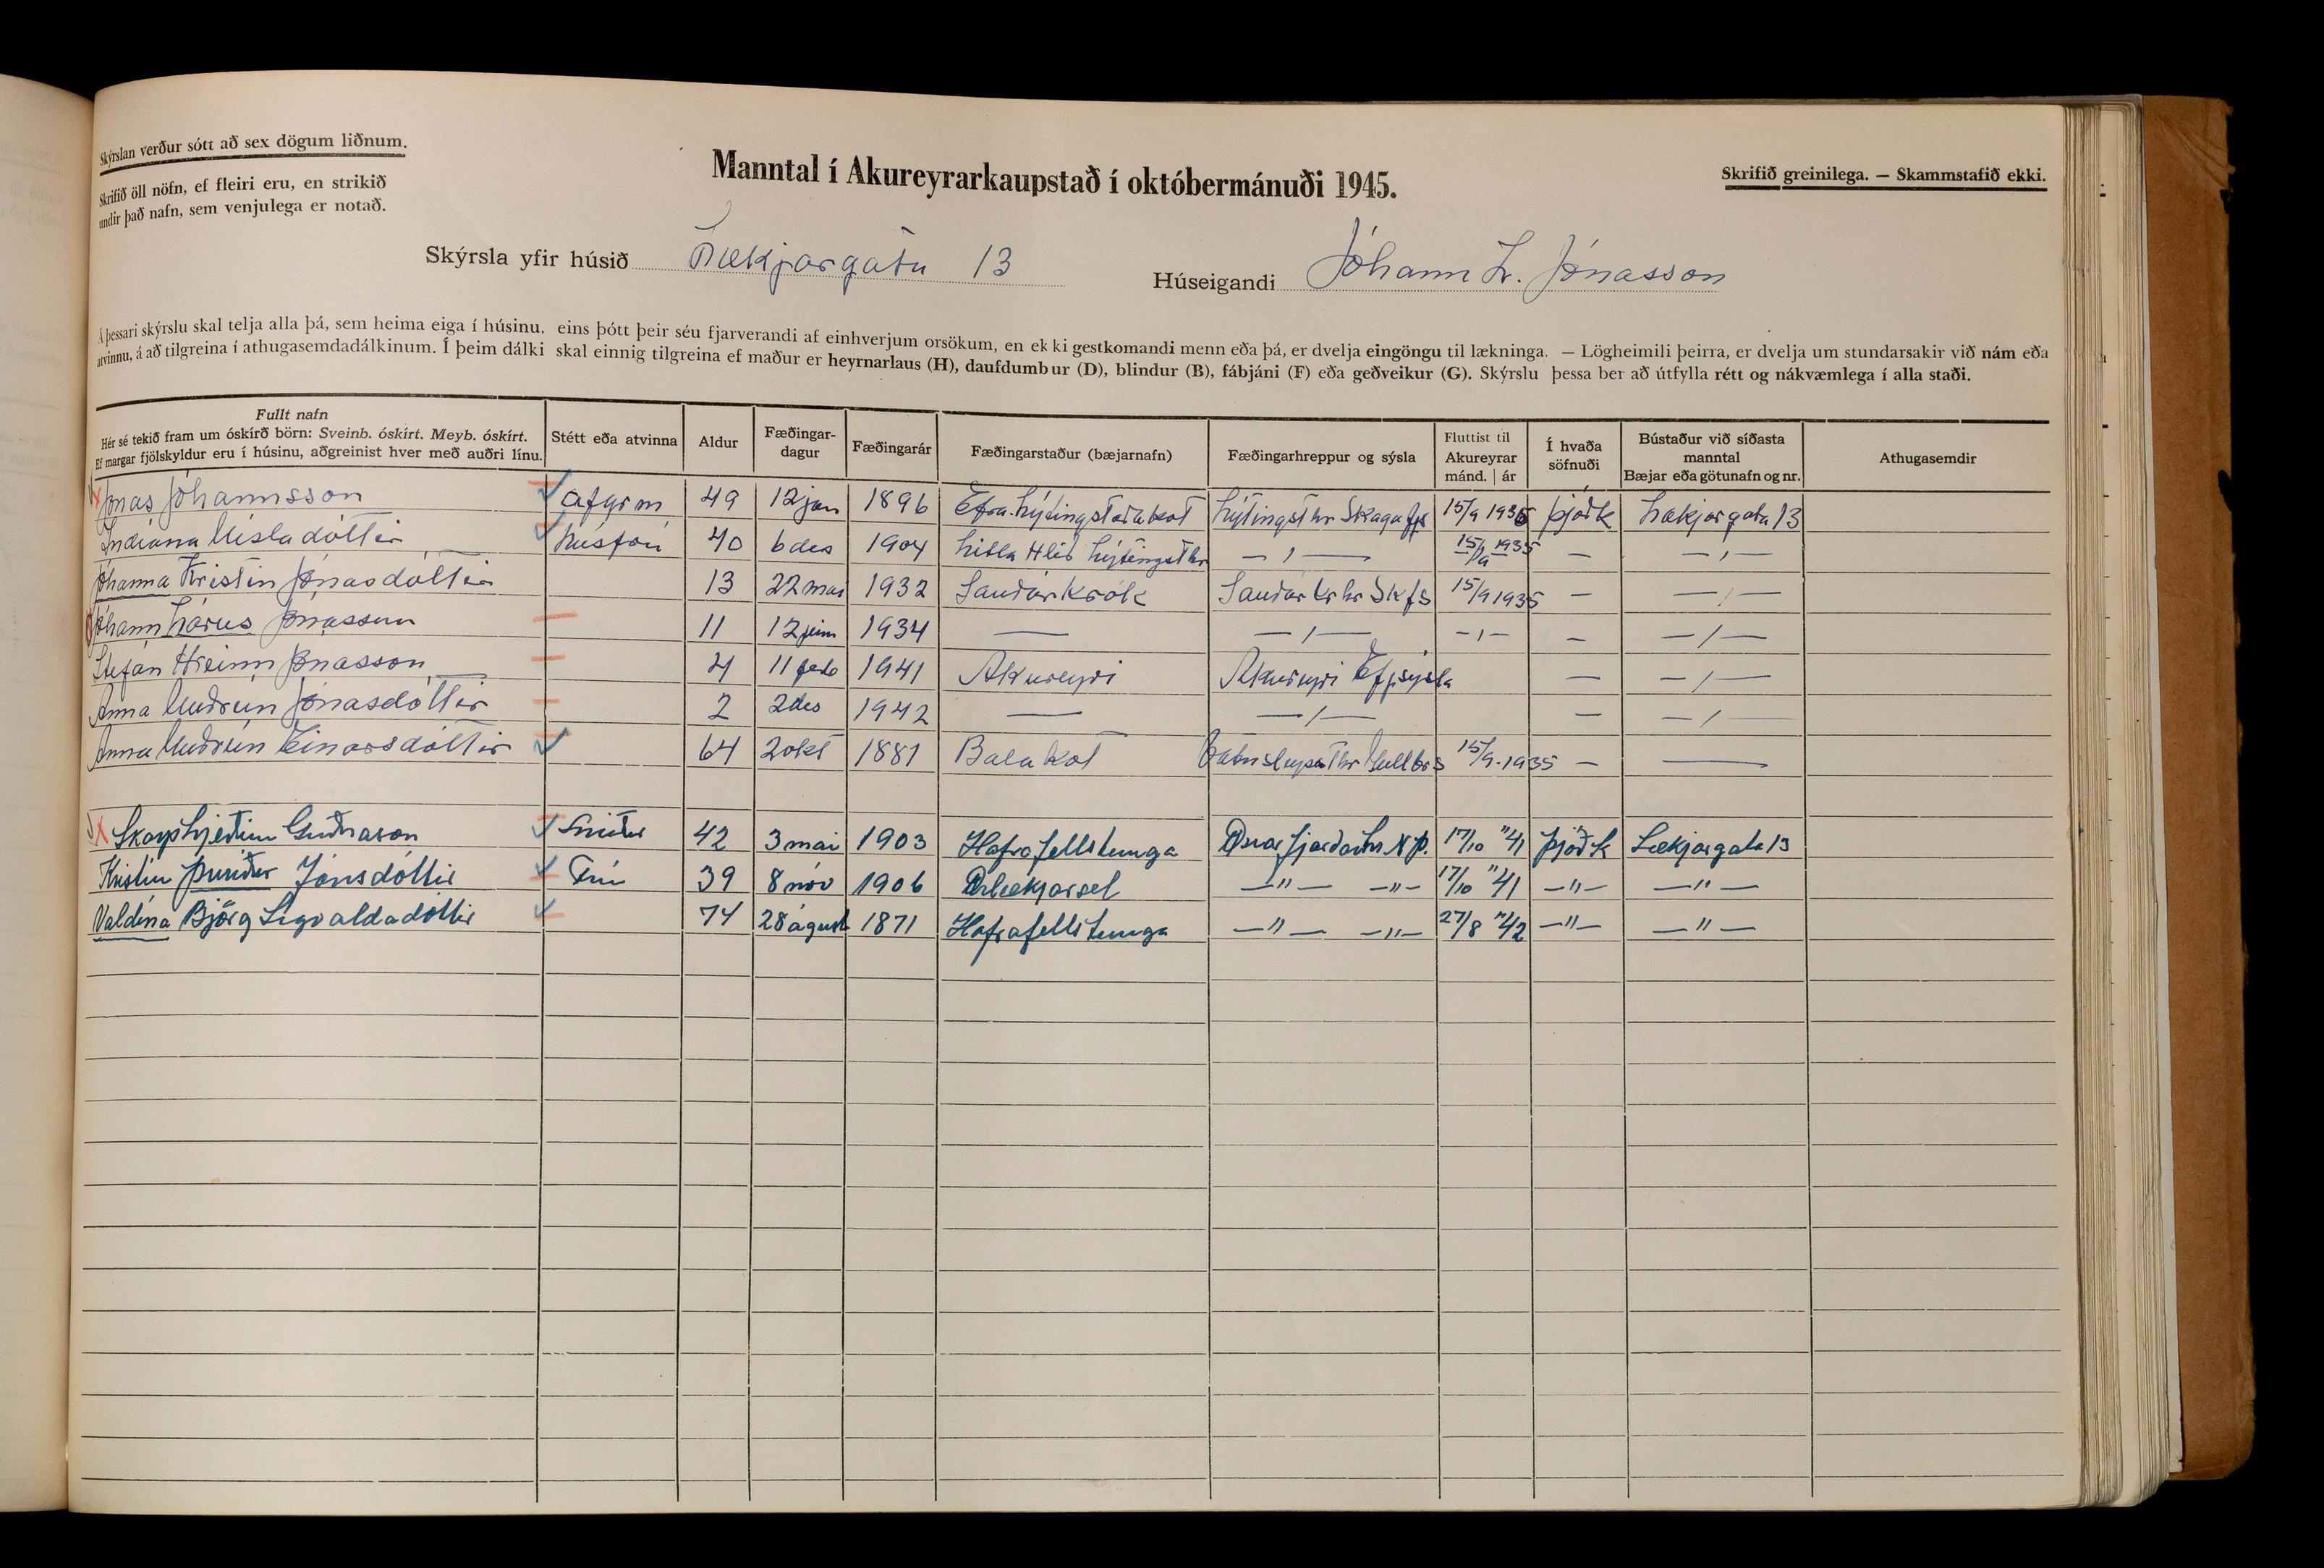 Skýrslan verður sótt að sex dögum liðnum.
Skrifið öll nöfn, ef fleiri eru, en strikið
undir það nafn, sem venjulega er notað.
Manntal í Akureyrarkaupstað í októbermánuði 1945.
Skrifið greinilega. — Skammstafið ekki.
Skýrsla yfir húsið Lækjargata 13
Húseigandi Jóhann L. Jónasson
Á þessari skýrslu skal telja alla þá, sem heima eiga í húsinu, eins þótt þeir séu fjarverandi af einhverjum orsökum, en ekki gestkomandi menn eða þá, er dvelja eingöngu til lækninga. — Lögheimili þeirra, er dvelja um stundarsakir við nám eða
atvinnu, á að tilgreina í athugasemdadálkinum. Í þeim dálki skal einnig tilgreina ef maður er heyrnarlaus (H), daufdumbur (D), blindur (B), fábjáni (F) eða geðveikur (G). Skýrslu þessa ber að útfylla rétt og nákvæmlega í alla staði.
Fullt nafn
Hér sé tekið fram um óskírð börn: Sveinb. óskírt. Meyb. óskírt.
Ef margar fjölskyldur eru í húsinu, aðgreinist hver með auðri línu.
Stétt eða atvinna
Aldur
Fæðingar-
dagur
Fæðingarár
Fæðingarstaður (bæjarnafn)
Fæðingarhreppur og sýsla
Fluttist til
Akureyrar
mánd. | ár
Í hvaða
söfnuði
Bústaður við síðasta
manntal
Bæjar eða götunafn og nr.
Athugasemdir
Jónas Jóhannsson afgrm 49 12 jan 1896 Efra-Lýtingstaðakot Lýtingsthr Skagafjs 15/9 1935 þjóðk Lækjargata 13
Indíana Gísladóttir húsfrú 40 6 des 1904 Litla Hlíð Lýtingsthr — " — 15/9 1935 — — " —
Jóhanna Kristín Jónasdóttir 13 22 maí 1932 Sauðárkrók Sauðárkrhr Skfs 15/9 1935 — — " —
Jóhann Lárus Jónasson 11 12 júní 1934 — — " — — " — — — " —
Stefán Hreinn Jónasson 4 11 feb 1941 Akureyri Akureyri Efjsýsla — — " —
Anna Guðrún Jónasdóttir 2 2 des 1942 — — " — — — " —
Anna Guðrún Einarsdóttir 64 2 okt 1881 Balakot Vatnsleysusthr Gullbrs 15/9-1935 — —
Skarphjeðinn Guðnason Smiður 42 3 maí 1903 Hafrafellstunga Öxarfjarðarhr N.Þ. 17/10 "41 þjóðk Lækjargata 13
Kristín Þuríður Jónsdóttir Frú 39 8 nóv 1906 Ærlækjarsel — " — — " — 17/10 "41 — " — — " —
Valdína Björg Sigvaldadóttir 74 28 ágúst 1871 Hafrafellstunga — " — — " — 27/8 "42 — " — — " —